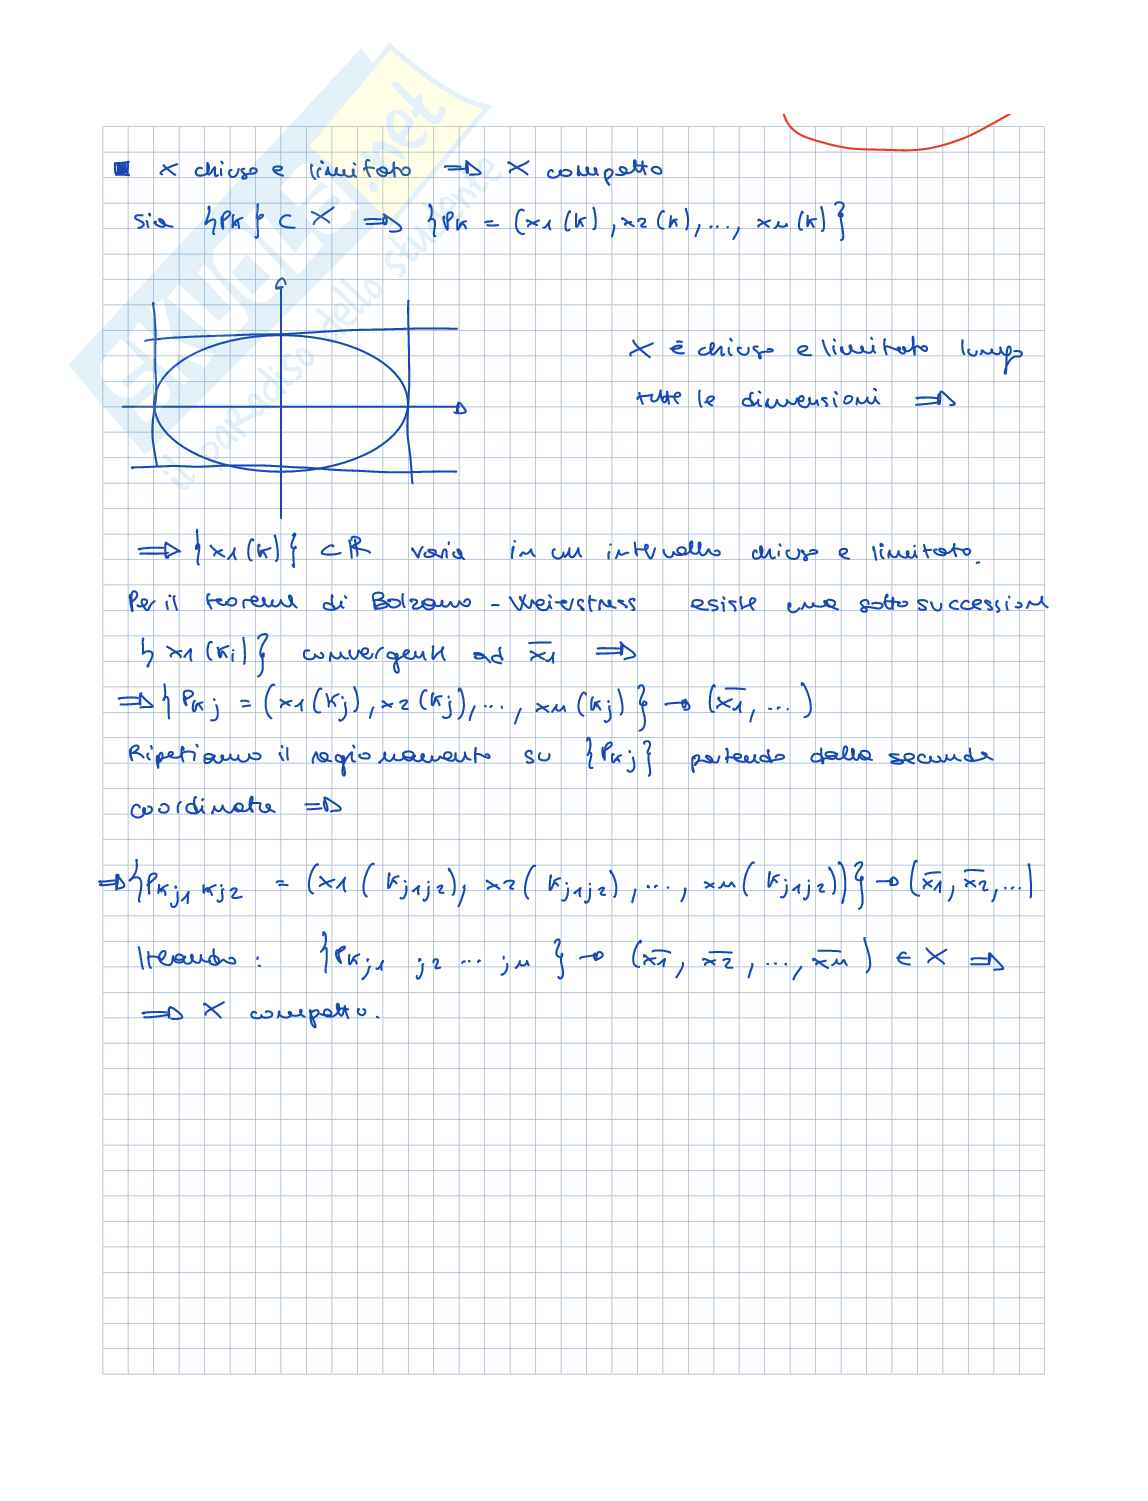 SKUOLA.net
il paradiso dello studente
X chiuso e limitato ⇒ X compatto
Sia {PK} ⊂ X ⇒ {PK = (x1(K), x2(K), ..., xn(K)}
X è chiuso e limitato lungo
tutte le dimensioni ⇒
⇒ {x1(K)} ⊂ R varia in un intervallo chiuso e limitato.
Per il teorema di Bolzano - Weierstress esiste una sottosuccessione
{x1(Ki)} convergente ad x̄1 ⇒
⇒ {PKj = (x1(Kj), x2(Kj), ..., xn(Kj)} → (x̄1, ...)
Ripetiamo il ragionamento su {PKj} partendo dalla seconda
coordinata ⇒
⇒ {PKj1 Kj2 = (x1(Kj1j2), x2(Kj1j2), ..., xn(Kj1j2))} → (x̄1, x̄2, ...)
Iterando: {PKj1 j2 ... jn} → (x̄1, x̄2, ..., x̄n) ∈ X ⇒
⇒ X compatto.